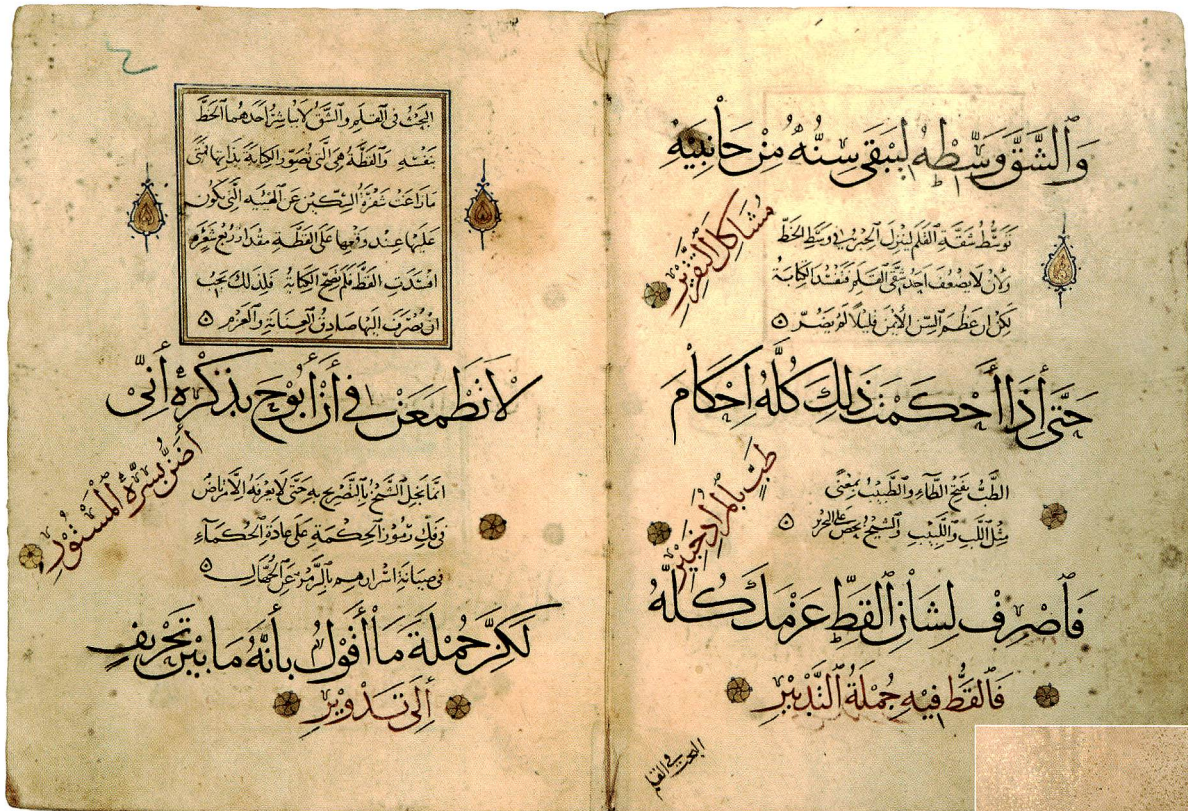 وَالشَّقَّ وَسِّطْهُ لِيَبْقَى سِنُّهُ مِنْ جَانِبَيْهِ
مُشَاكِلَ التَّقْدِيرِ
توسط شقة القلم لينزل الحبر في وسط الخط
ولان لا يضعف احد شقي القلم فتفسد الكتابة
لكن ان عظم السن الايمن قليلا لم يضر ه
حَتَّى إِذَا أَحْكَمْتَ ذَلِكَ كُلَّهُ إِحْكَامَ
طَبٍّ بِالْمُرَادِ خَبِيرِ
الطب بفتح الطاء والطبيب بمعنى
مثل اللب واللبيب والشيخ
فَاصْرِفْ لِشَأْنِ الْقَطِّ عَزْمَكَ كُلَّهُ
فَالْقَطُّ فِيهِ جُمْلَةُ التَّدْبِيرِ
البحث في القلم
البحث في القلم والشق لا يباشر احدهما الخط
بنفسه والقطة هي التي تصور الكتابة بذاتها فمتى
ما زاغت شفرة السكين عن الهيئة التي تكون
عليها عند وقعها على القطة مقدار ربع شعرة
افسدت القط فلم تصح الكتابة فلذلك يجب
ان يصرف اليها صادق العناية والعزم ه
لَا تَطْمَعَنْ فِي أَنْ أَبُوحَ بِذِكْرِهِ إِنِّي
أَضَنُّ بِسِرِّهِ الْمَسْتُورِ
انما بخل الشيخ بالتصريح به حتى لا يعرفه الا مرتاض
في فك رموز الحكمة على عادة الحكماء
في صيانة اسرارهم بالرمز عن الجهال ه
لَكِنَّ جُمْلَةَ مَا أَقُولُ بِأَنَّهُ مَا بَيْنَ تَحْرِيفٍ
إِلَى تَدْوِيرِ